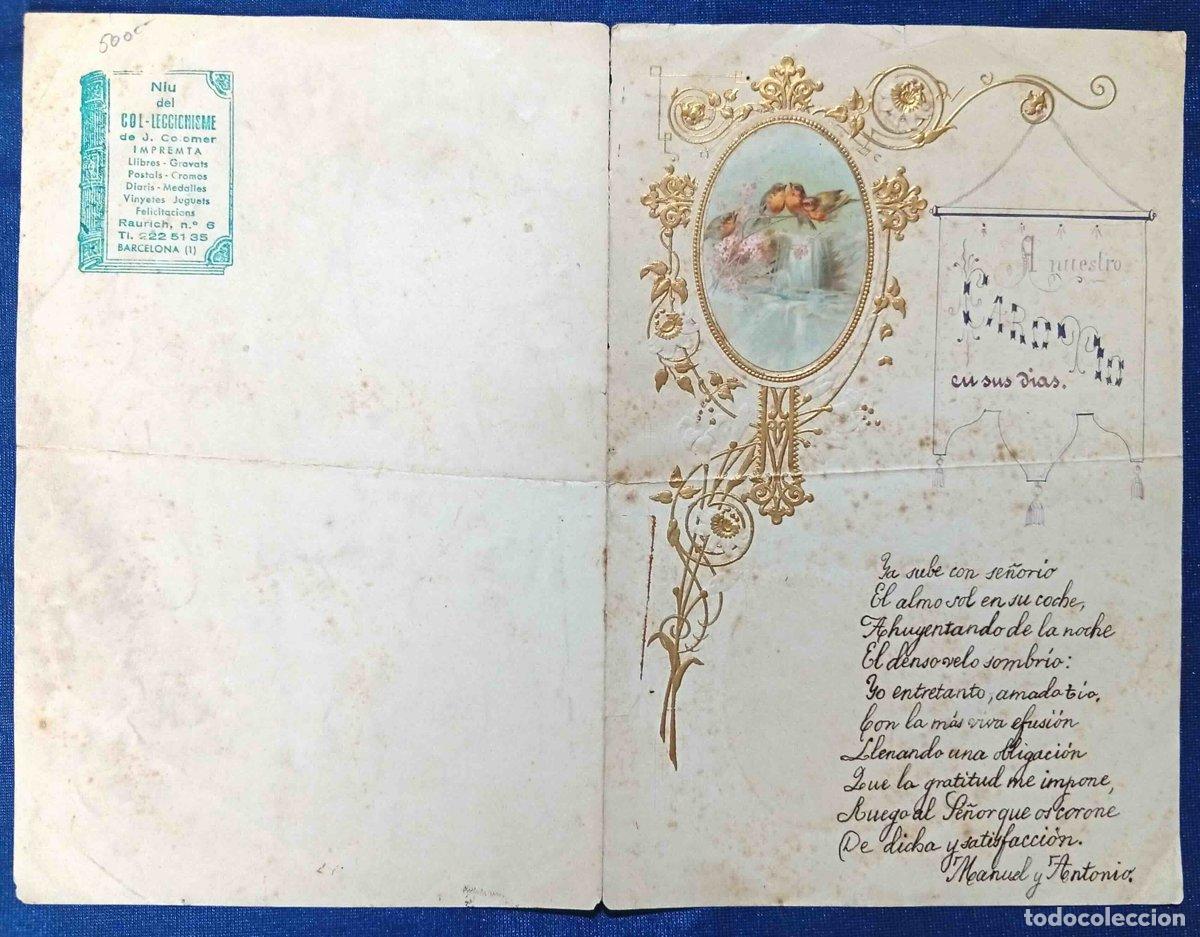 500
Niu
del
COL-LECCIONISME
de J. Colomer
IMPREMTA
Llibres - Gravats
Postals - Cromos
Diaris - Medalles
Vinyetes Juguets
Felicitacions
Raurich, n.º 6
Tl. 222 51 35
BARCELONA (1)
A nuestro
CARO TIO
en sus dias.
Ya sube con señorio
El almo sol en su coche,
Ahuyentando de la noche
El denso velo sombrio:
Yo entretanto, amado tio,
Con la más viva efusión
Llenando una obligación
Que la gratitud me impone,
Ruego al Señor que os corone
De dicha y satisfacción.
Manuel y Antonio.
todocoleccion